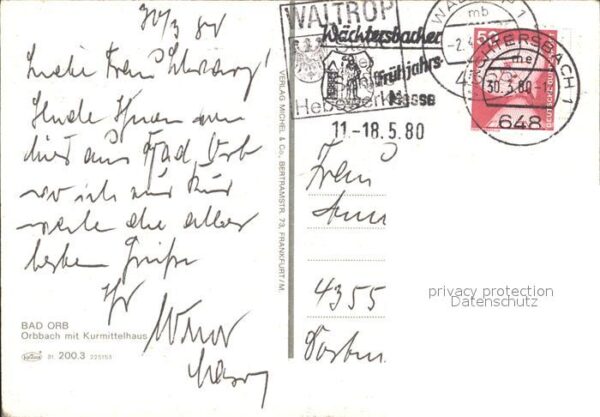 30/3 80
Liebe Frau
Sende Ihnen von
hier aus Bad Orb
wo ich zur Kur
weile die aller
besten Grüße
Ihr
Werner
BAD ORB
Orbbach mit Kurmittelhaus
Bl. 200.3 225153
VERLAG MICHEL & Co., BERTRAMSTR. 73, FRANKFURT/M.
WALTROP
Wächtersbacher
Frühjahrs-
Messe
Hebewerk
11.-18.5.80
WALTROP 1
mb
WÄCHTERSBACH 1
me
30.3.80
648
50
DEUTSCHE BUNDESPOST
Frau
4355
privacy protection
Datenschutz